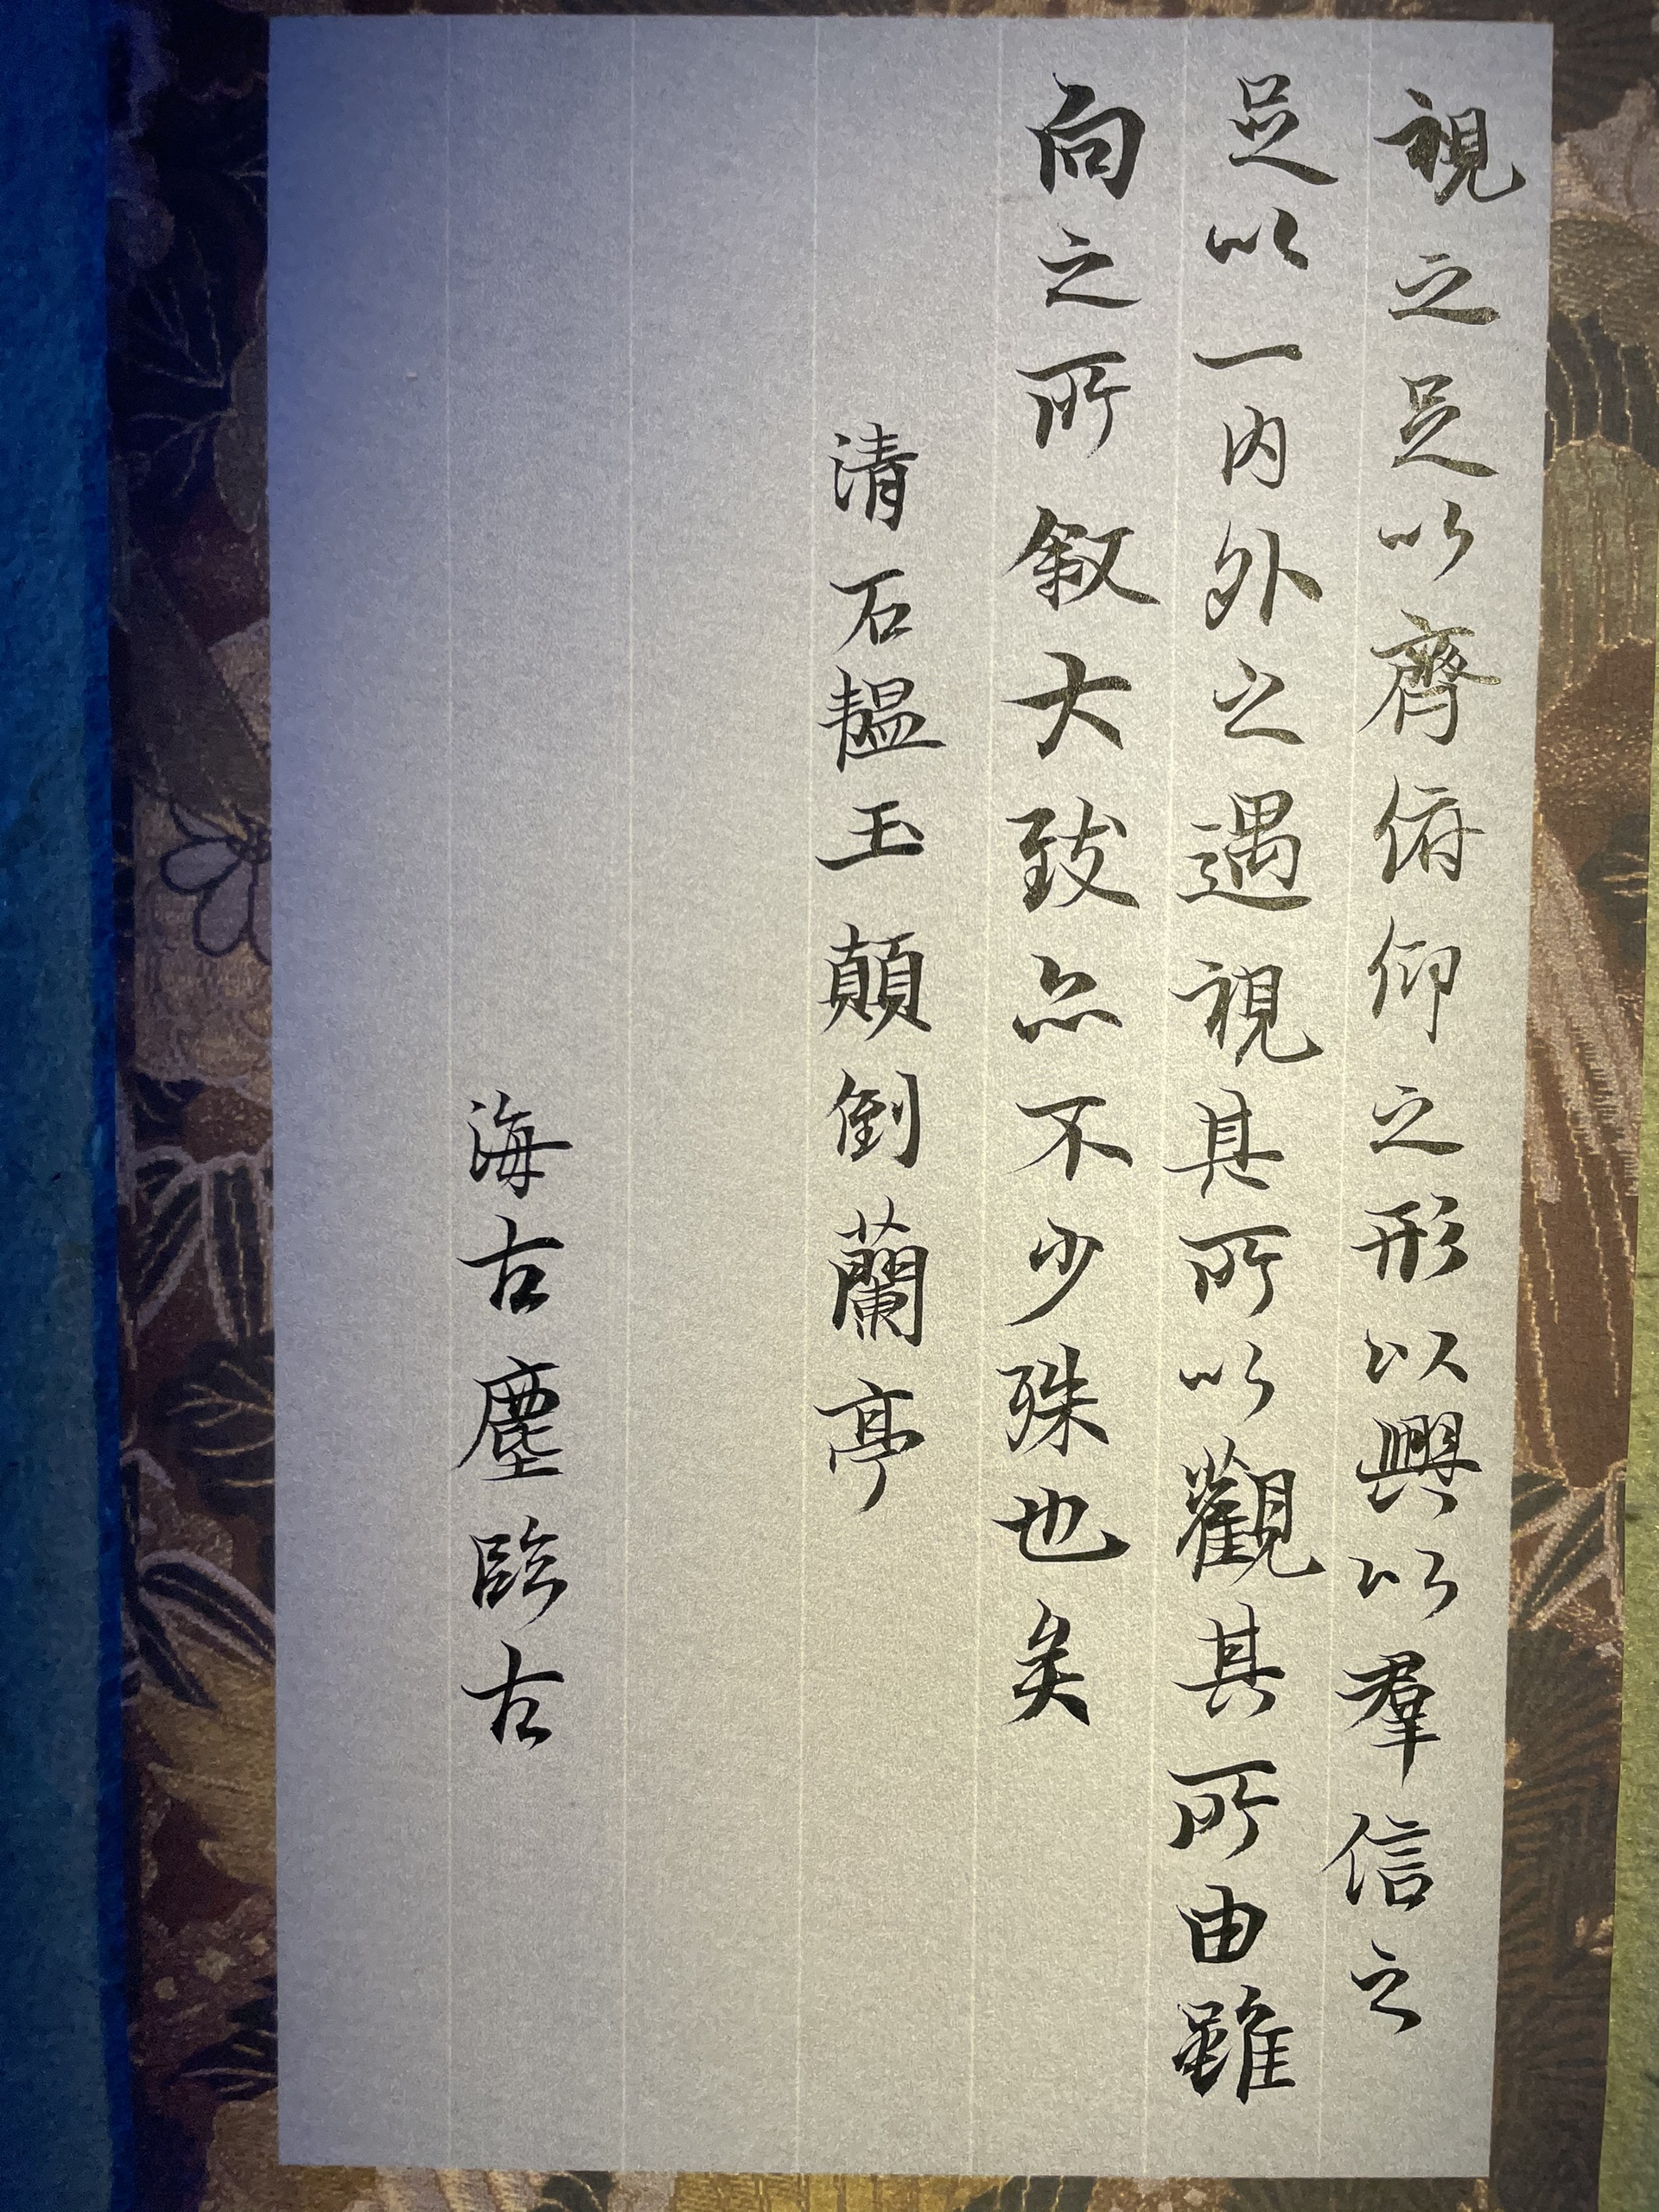 視之足以齊俯仰之形以興以羣信之
足以一內外之遇視其所以觀其所由雖
向之所敘大致亦不少殊也矣
清石韞玉顛倒蘭亭
海古塵臨古